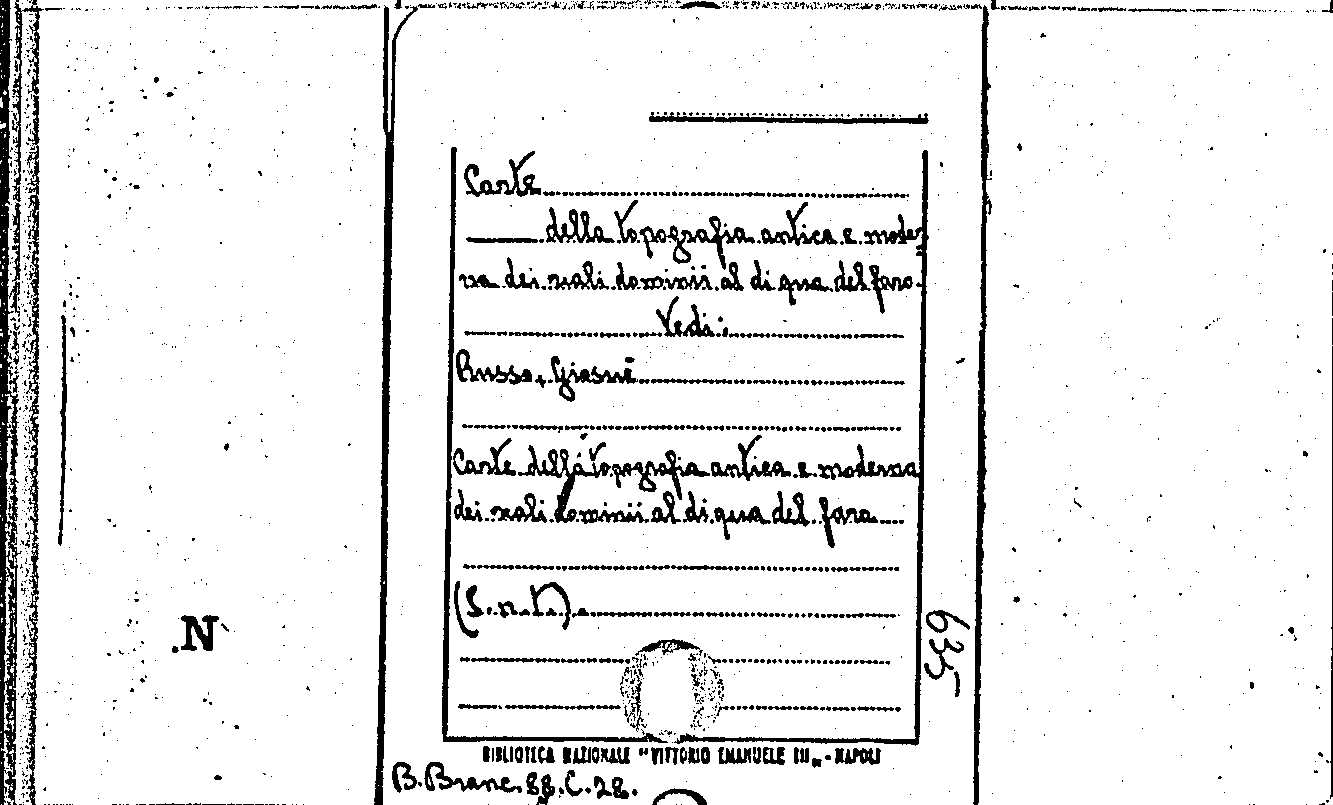 Carte
della topografia antica e moder-
na dei reali dominii al di qua del faro.
Vedi:
Russo, Giosuè
Carte della topografia antica e moderna
dei reali dominii al di qua del faro
(S.n.t.).
635
.N
BIBLIOTECA NAZIONALE "VITTORIO EMANUELE III„ - NAPOLI
B. Branc. 88. C. 28.